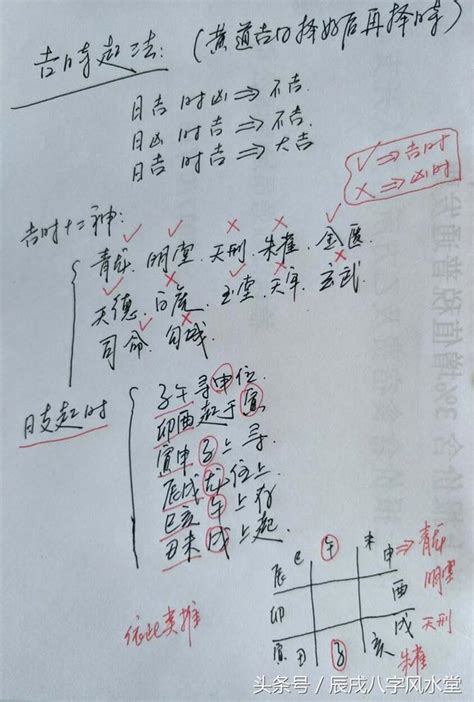 吉時起法: (黄道吉日择好后再择時)
日吉 时凶 ⇒ 不吉.
日凶 时吉 ⇒ 不吉.
日吉 时吉 ⇒ 大吉
✓ ⇒ 吉时
× ⇒ 凶时
吉时十二神:
青龙. 明堂. 天刑. 朱雀. 金匮.
天德. 白虎. 玉堂. 天牢. 玄武.
司命. 勾
日支起时
子午寻申位.
卯酉起于寅.
寅申子上寻.
辰戌龙位上.
巳亥午上存
丑未戌上起.
依此类推
辰 巳 午 未 申 ⇒ 青龙
卯 酉 明堂
戌 天刑
寅 丑 子 亥 朱雀
头条号 / 辰戌八字风水堂